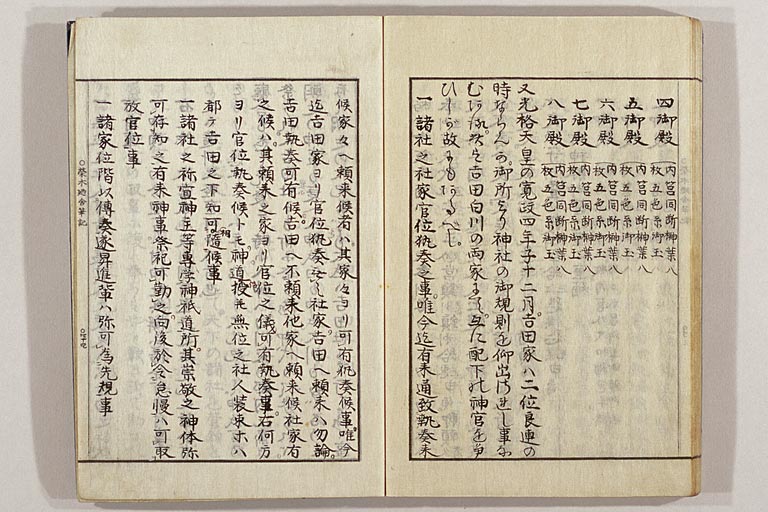 四御殿 内宮同断榊葉八枚五色糸御玉
五御殿 内宮同断榊葉八枚五色糸御玉
六御殿 内宮同断榊葉八枚五色糸御玉
七御殿 内宮同断榊葉八枚五色糸御玉
八御殿 内宮同断榊葉八枚五色糸玉
又光格天皇の寛政四年子十二月吉田家ハ二位良連の
時ならんか御所より神社の御規則を仰出され候事な
吉田白川の両家にて互に配下の神官を争
ひしか故にもあるへし
一諸社之社家官位執奏之事唯今迄有来通致執奏来
候家々ヘ頼来候者ハ其家々ヨリ可有執奏候事唯今
迄吉田家ヨリ官位執奏之社家吉田ヘ頼来ハ勿論
吉田執奏可有候吉田ヘ不頼来他家ヘ頼来候社家有
之候ハ其頼来之家ヨリ官位之儀可有執奏事右何方
ヨリ官位執奏候トモ神道授其無位之社人装束ホハ
都テ吉田之下知可相随候事
一諸社之祢宣神主等専学神祇道所其崇敬之神体弥
可存知之有来神事祭祀可勤之向後於令怠慢ハ可取
放官位事
一諸家位階以傳奏遂昇進輩ハ弥可為先規事